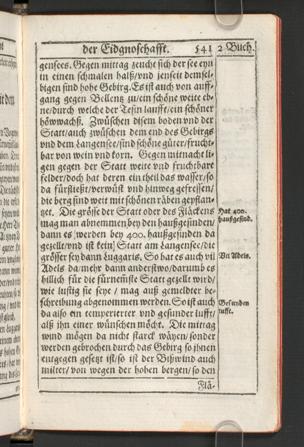 der Eidgnoschafft. 541 2 Buch.
gensees. Gegen mittag zeucht sich der see eyn
in einen schmalen halß/vnd jenseit demsel-
bigen sind hohe Gebirg. Es ist auch von auff-
gang gegen Bellentz zu/ein schöne weite eb-
ne/durch welche der Tesin laufft/ein schöner
höwwachß. Zwüschen disem boden vnd der
Statt/auch zwüschen dem end des Gebirgs
vnd dem Langensee/sind schöne güter/frucht-
bar von wein vnd korn. Gegen mitnacht li-
gen gegen der Statt weite vnd fruchtbare
felder/doch hat deren ein theil das wasser/so
da fürfließt/verwüst vnd hinweg gefressen/
die berg sind weit mit schönen räben gepflan-
tzet. Die grösse der Statt oder des Fläckens
mag man abnemmen bey den haußgesinden/
dann es werden bey 400. haußgesinden da
gezellt/vnd ist kein Statt am Langensee/die
grösser sey dann Luggaris. So hat es auch vil
Adels da/mehr dann anderstwo/darumb es
billich für die fürnemste Statt gezellt wird/
wie lustig sie seye/mag auß gemeldter be-
schreibung abgenommen werden. So ist auch
da also ein temperierter vnd gesunder lufft/
alß ihn einer wünschen möcht. Die mittag
wind mögen da nicht starck wäyen/sonder
werden gebrochen durch das Gebirg so ihnen
entgegen gesetzt ist/so ist der Bißwind auch
milter/von wegen der hohen bergen/so den
Flä-
Hat 400.
haußgesind.
Vil Adels.
Gesunden
lufft.